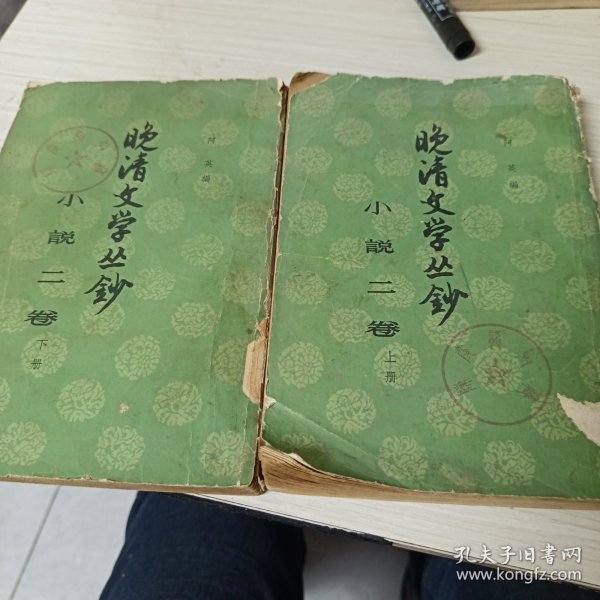 晚清文学丛鈔
阿英編
小說二卷
下册
晚清文学丛鈔
阿英編
小說二卷
上册
孔夫子旧书网
www.kongfz.com